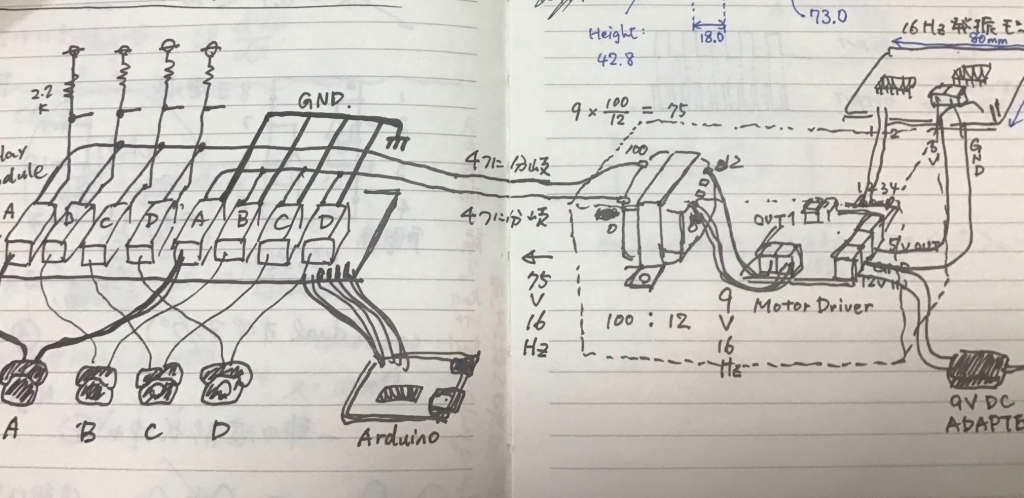 2.2
K
GND.
odule
A
D
C
D
A
B
C
D
A
B
C
D
Arduino
Height:
42.8
18.0
73.0
9 × 100/12 = 75
4つに分岐
4つに分岐
100
12
0
0
←
75
V
16
Hz
100 : 12
9
V
16
Hz
16Hz 発振モニ
80mm
1 2
5
V
GND
1234
OUT1
5V OUT
GND
12V IN
Motor Driver
9V DC
ADAPTE